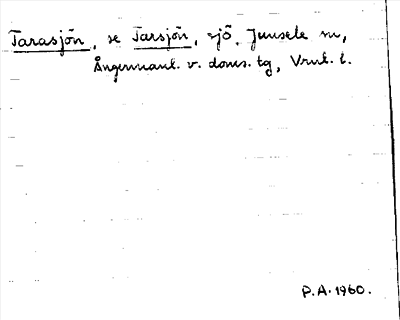 Tarasjön, se Tarsjön, sjö, Junsele sn,
Ångermanl. v. doms. tg, Vnrl. l.
P.A. 1960.